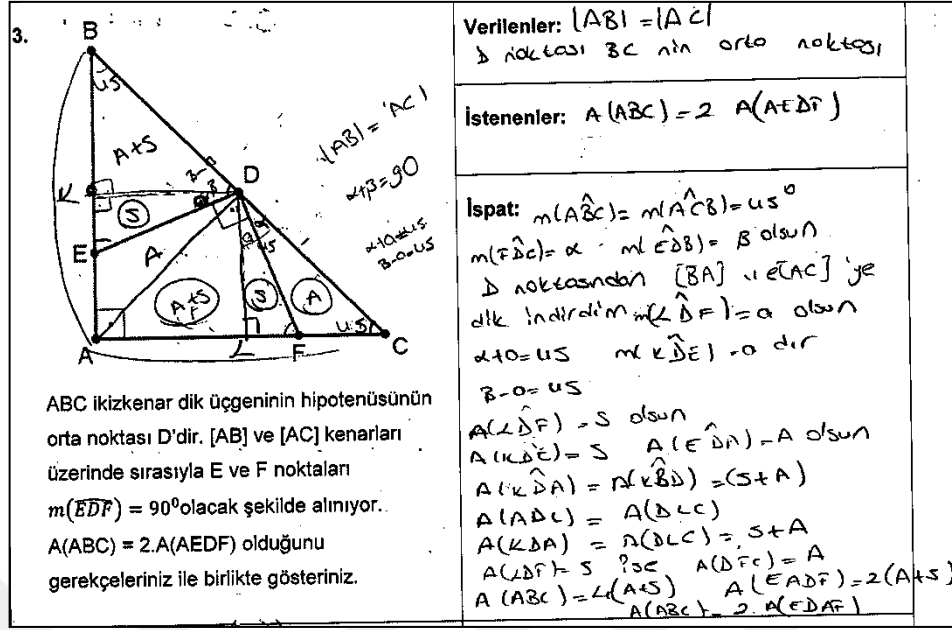 3.
B
45
A+S
K
D
S
E
A
A+S
S
A
45
A
L
F
C
|AB| = |AC|
α+β=90
α+a=45
B-a=45
ABC ikizkenar dik üçgeninin hipotenüsünün
orta noktası D'dir. [AB] ve [AC] kenarları
üzerinde sırasıyla E ve F noktaları
m(EDF) = 90⁰olacak şekilde alınıyor.
A(ABC) = 2.A(AEDF) olduğunu
gerekçeleriniz ile birlikte gösteriniz.
Verilenler: |AB| = |AC|
D noktası BC nin orta noktası
İstenenler: A(ABC) = 2 A(AEDF)
İspat: m(ABC) = m(ACB) = 45⁰
m(FDC) = α m(EDB) = β olsun
D noktasından [BA] ve [AC] 'ye
dik indirdim m(LDF) = a olsun
α+a=45 m(KDE) = a dır
B-a=45
A(LDF) = S olsun
A(KDE) = S A(EDA) = A olsun
A(KDA) = A(KBD) = (S+A)
A(ADL) = A(DLC)
A(KDA) = A(DLC) = S+A
A(LDF) = S ise A(DFC) = A
A(ABC) = 4(A+S) A(EADF) = 2(A+S)
A(ABC) = 2 A(EDAF)